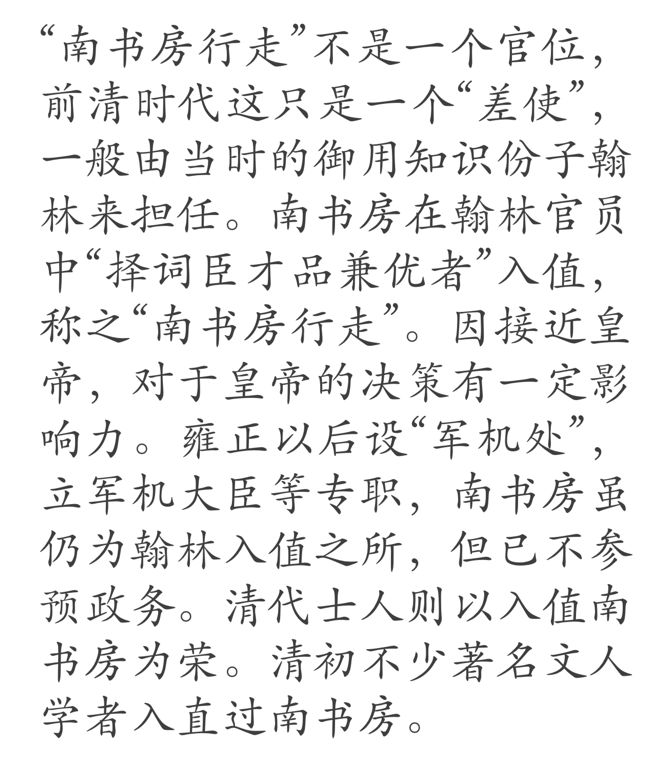 “南书房行走”不是一个官位，
前清时代这只是一个“差使”，
一般由当时的御用知识份子翰
林来担任。南书房在翰林官员
中“择词臣才品兼优者”入值，
称之“南书房行走”。因接近皇
帝，对于皇帝的决策有一定影
响力。雍正以后设“军机处”，
立军机大臣等专职，南书房虽
仍为翰林入值之所，但已不参
预政务。清代士人则以入值南
书房为荣。清初不少著名文人
学者入直过南书房。